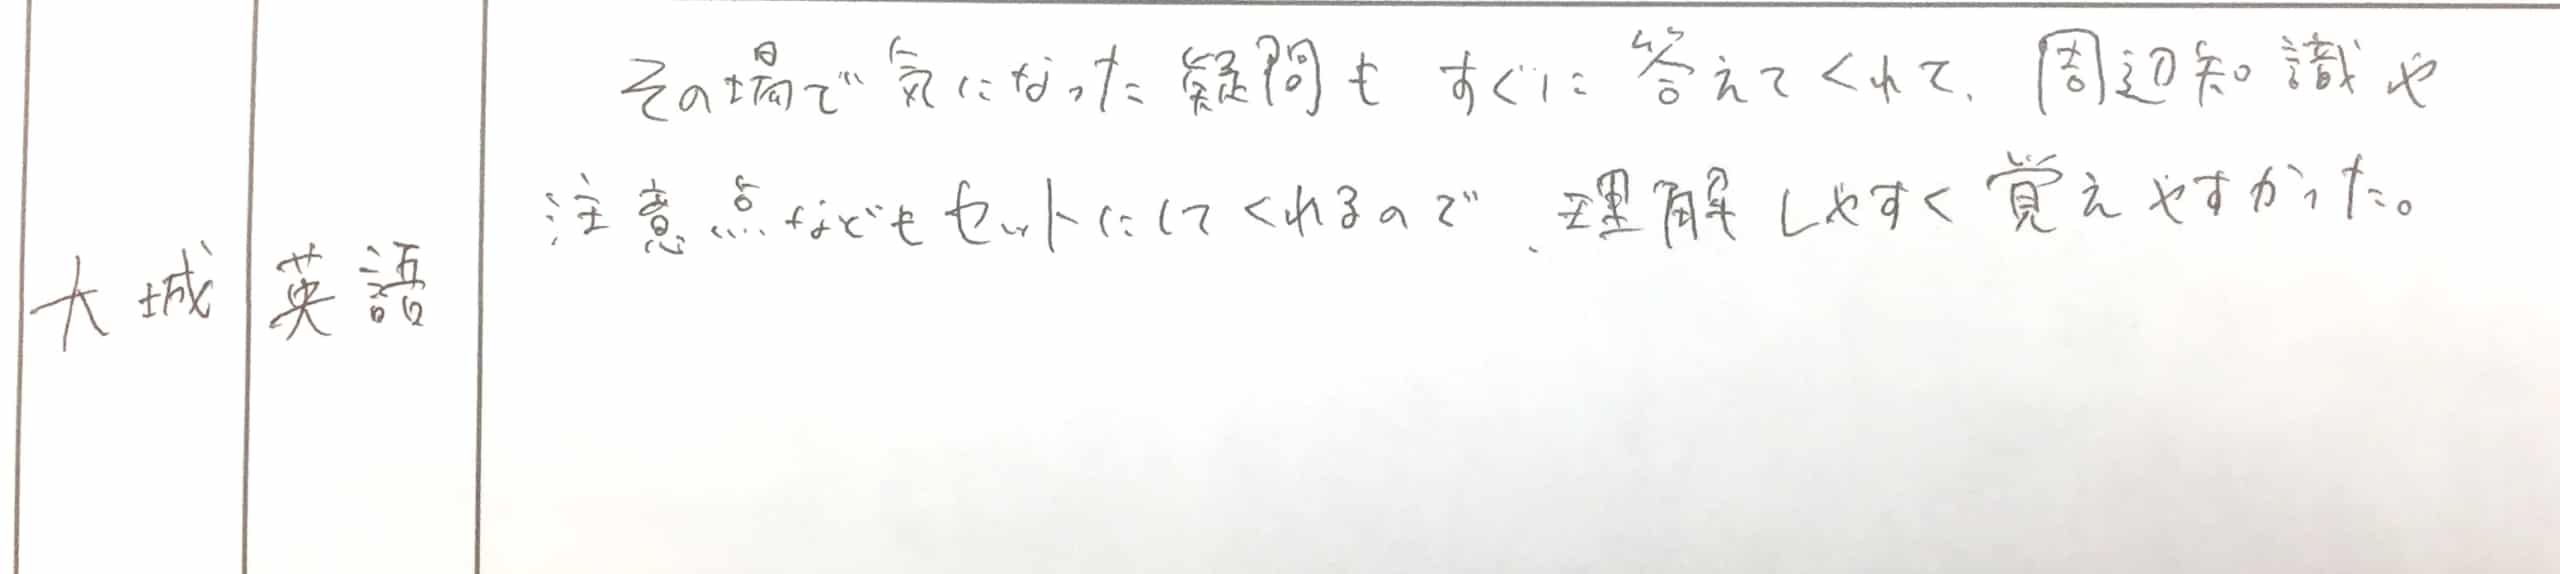 大城
英語
その場で気になった疑問もすぐに答えてくれて、周辺知識や
注意点などもセットにしてくれるので、理解しやすく覚えやすかった。